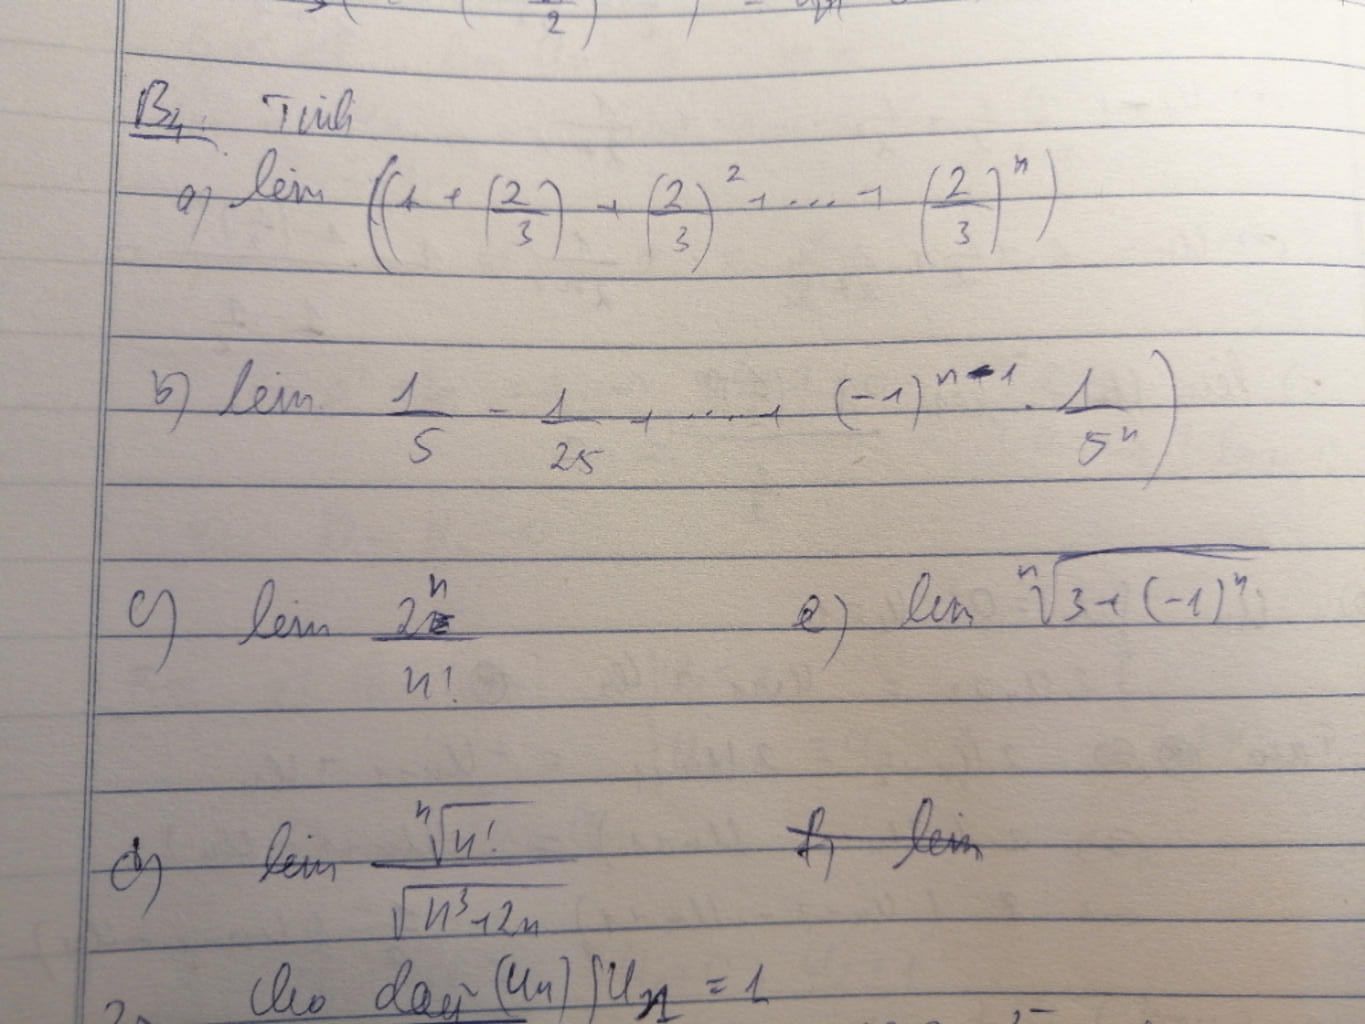 B4: Tính
a) lim (1 + (2/3) + (2/3)^2 + .... + (2/3)^n)
b) lim 1/5 - 1/25 + ..... + (-1)^{n-1} . 1/5^n)
c) lim 2^n/n! e) lim \sqrt[n]{3+(-1)^n}
d) lim \sqrt[n]{n!}/\sqrt{n^3+2n} f) lim
Cho dãy (Un) U1 = 1